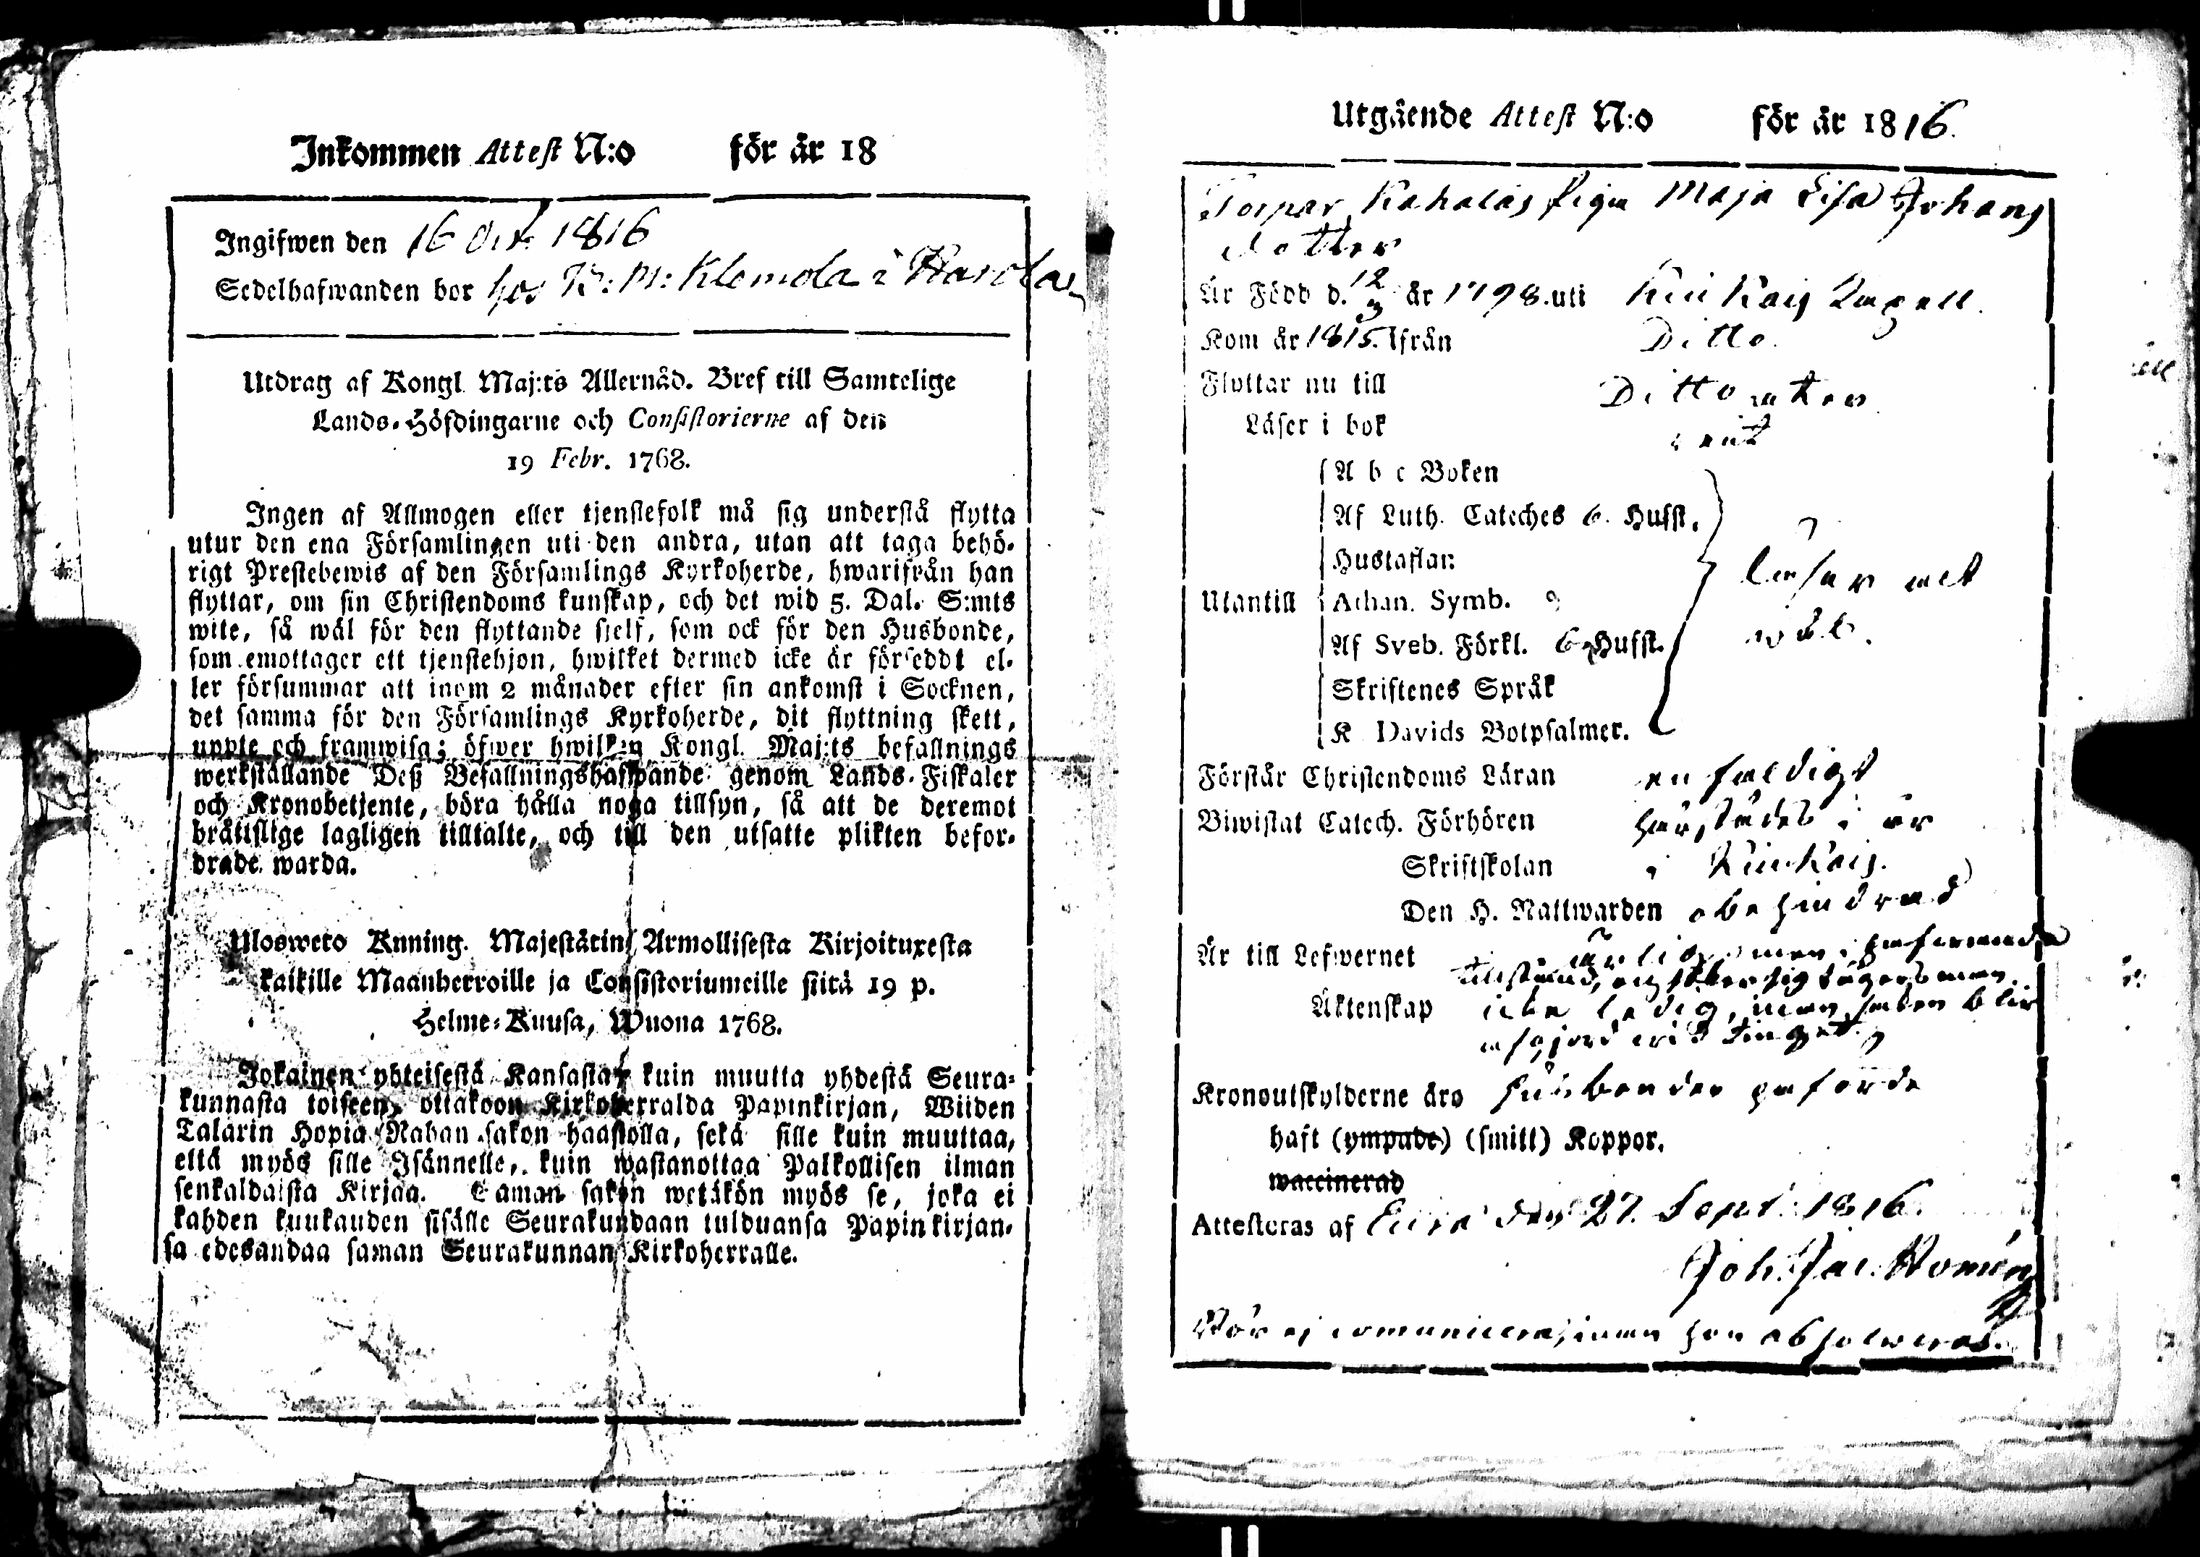 Inkommen Attest N:o för år 18
Ingifwen den 16 Oct. 1816
Sedelhafwanden bor hos B: M: Klemola i Harola
Utdrag af Kongl. Maj:ts Allernåd. Bref till Samtelige
Lands-Höfdingarne och Consistorierne af den
19 Febr. 1768.
Ingen af Allmogen eller tjenstefolk må sig understå flytta
utur den ena Församlingen uti den andra, utan att taga behö-
rigt Prestebewis af den Församlings Kyrkoherde, hwarifrån han
flyttar, om sin Christendoms kunskap, och det wid 5. Dal. S:mts
wite, så wäl för den flyttande sjelf, som ock för den Husbonde,
som emottager ett tjenstehjon, hwilket dermed icke är förseddt el-
ler försummar att inom 2 månader efter sin ankomst i Socknen,
det samma för den Församlings Kyrkoherde, dit flyttning skett,
uppte och framwisa; öfwer hwilken Kongl. Maj:ts befallnings
werkställande Deß Befallningshafwande genom Lands-Fiskaler
och Kronobetjente, böra hålla noga tillsyn, så att de deremot
bråttslige lagligen tilltalte, och till den utsatte plikten befor-
drade warda.
Ulosweto Kuning. Majestätin Armollisesta Kirjoituxesta
kaikille Maanherroille ja Consistoriumeille siitä 19 p.
Helme-Kuusa, Wuona 1768.
Jokainen yhteisestä Kansasta, kuin muutta yhdestä Seura-
kunnasta toiseen, ottakoon Kirkoherralda Papinkirjan, Wiiden
Talarin Hopia Rahan sakon haastolla, sekä sille kuin muuttaa,
että myös sille Isännelle, kuin wastanottaa Palkollisen ilman
senkaldaista Kirjaa. Saman sakon wetäkön myös se, joka ei
kahden kuukauden sisälle Seurakundaan tulduansa Papinkirjan-
sa edesandaa saman Seurakunnan Kirkoherralle.
Utgående Attest N:o för år 1816.
Torpar Kahalas Piga Maja Lisa Johans
dotter
Är Född d. 12/3 år 1798. uti Kiukais Capell.
Kom år 1815. Ifrån Ditto.
Flyttar nu till Ditto åter
Läser i bok rent
A b c Boken
Af Luth. Cateches 6. Hufst.
Hustaflan
Utantill Athan. Symb.
Af Sveb. Förkl. 6 Hufst.
Skriftenes Språk
K Davids Botpsalmer.
läser alt
wäl.
Förstår Christendoms Läran enfaldigt
Biwistat Catech. Förhören härstädes i år
Skriftskolan i Kiukais.
Den H. Nattwarden obehindrad
Är till Lefwernet ärlig, men i hafwande
tillstånd, och
Äktenskap icke ledig, men saken blir
afgjord wid Tinget.
Kronoutskylderne äro husbonden påförde
haft (ympade) (smitt) Koppor.
waccinerad
Attesteras af Eura den 27. Sept. 1816.
Joh. Jac.
Bör ej communicera, innan hon absolweras.